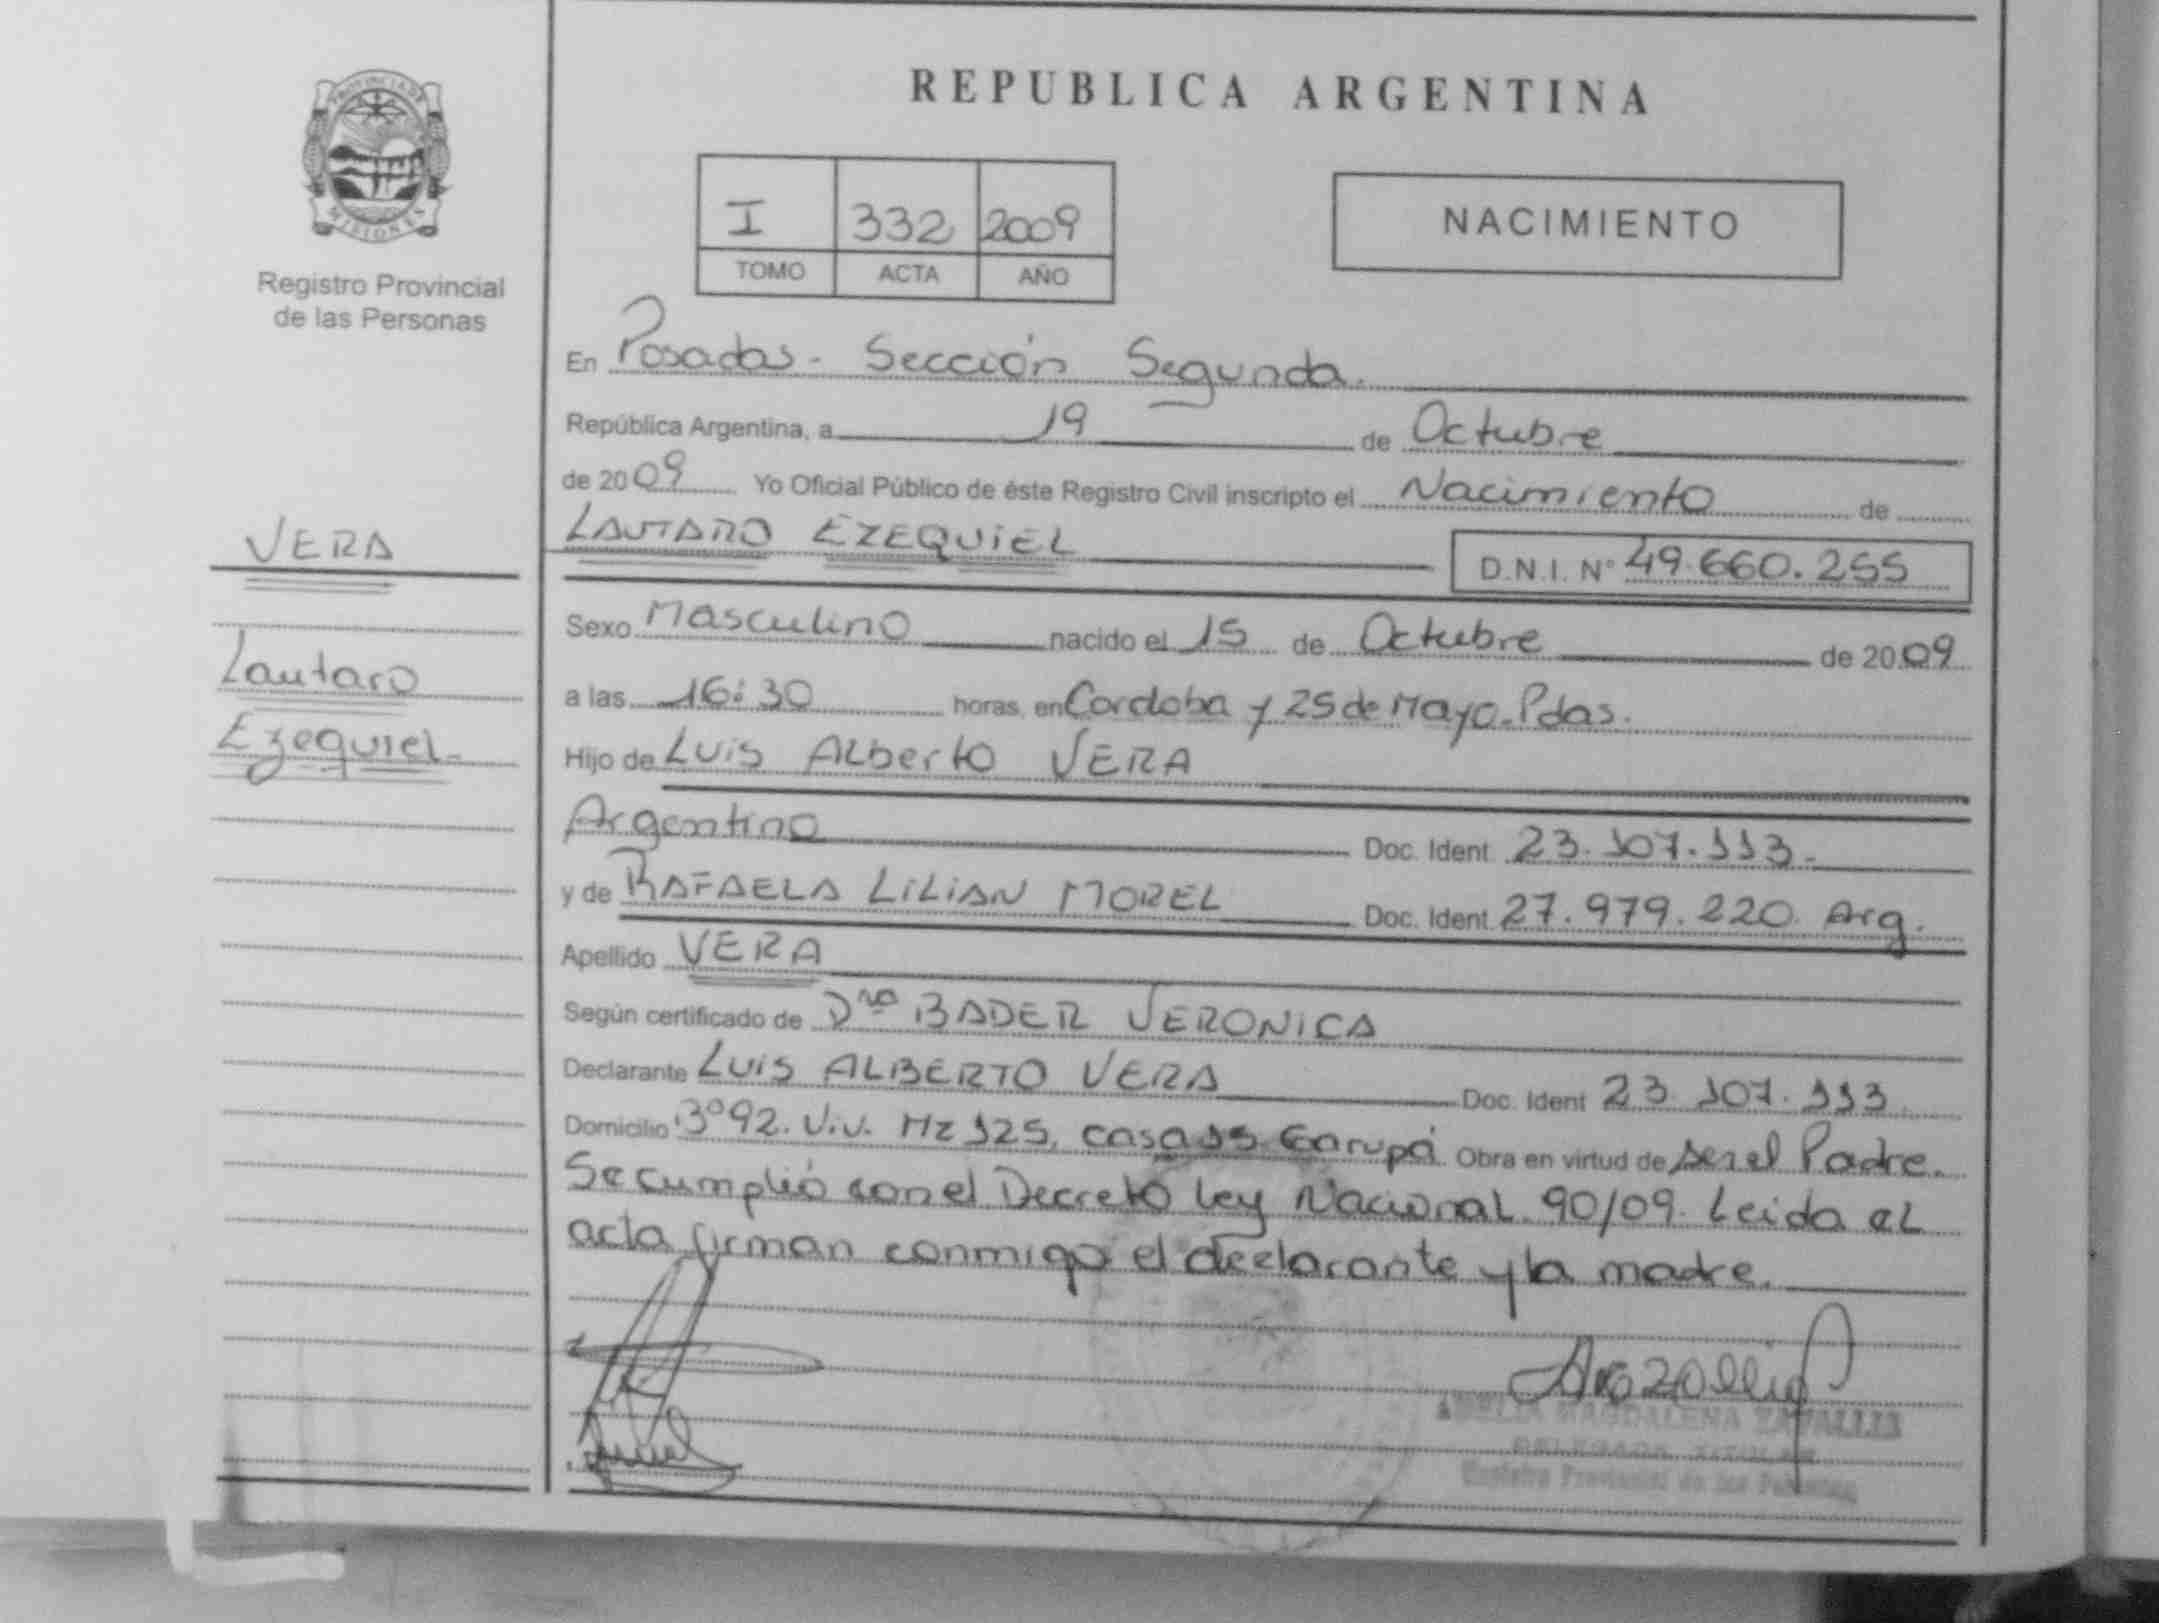 REPUBLICA ARGENTINA
PROVINCIA DE
MISIONES
Registro Provincial
de las Personas
I 332 2009
TOMO ACTA AÑO
NACIMIENTO
En Posadas - Sección Segunda.
República Argentina, a 19 de Octubre
de 2009 Yo Oficial Público de éste Registro Civil inscripto el Nacimiento de
VERA
LAUTARO EZEQUIEL D.N.I. N° 49.660.255
Lautaro
Ezequiel
Sexo Masculino nacido el 15 de Octubre de 2009
a las 16:30 horas, en Cordoba y 25 de Mayo. Pdas.
Hijo de Luis Alberto VERA
Argentino Doc. Ident. 23.107.113.
y de RAFAELA LILIAN MOREL Doc. Ident. 27.979.220. Arg.
Apellido VERA
Según certificado de Dra BADER VERONICA
Declarante LUIS ALBERTO VERA Doc. Ident 23.107.113
Domicilio B° 92. Viv. Mz 125, casa 15 Garupá. Obra en virtud de ser el Padre.
Se cumplió con el Decreto Ley Nacional 90/09. Leida el
acta firman conmigo el declarante y la madre.
MAGDALENA ZAVALLIA
DELEGADA TITULAR
Registro Provincial de las Personas